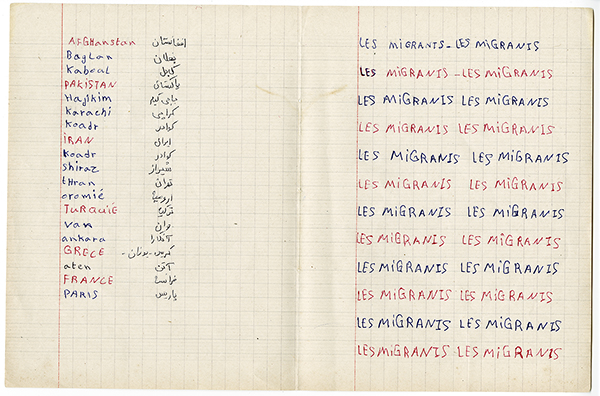 AFGHanstan افغانستان
Baglan بغلان
Kaboal کابل
PAKISTAN پاکستان
Hajikim حاجی کیم
Karachi کراچی
Koadr گوادر
iRAN ایران
Koadr گوادر
Shiraz شیراز
tHran تهران
oromié ارومیه
TuRQUiÉ ترکیه
van وان
ankara آنکارا
GRECE گریس - یونان -
aten آتن
FRANCE فرانسه
PARIS پاریس
LES MiGRANTS - LES MiGRANIS
LES MIGRANIS - LES MiGRANIS
LES MiGRANIS LES MiGRANIS
LES MiGRANIS LES MiGRANIS
LES MiGRANIS LES MiGRANIS
LES MiGRANIS LES MiGRANIS
LES MiGRANIS LES MiGRANIS
LES MiGRANIS LES MiGRANIS
LES MiGRANIS LES MiGRANIS
LES MiGRANIS LES MiGRANIS
LES MiGRANIS LES MiGRANIS
LES MiGRANIS LES MiGRANIS